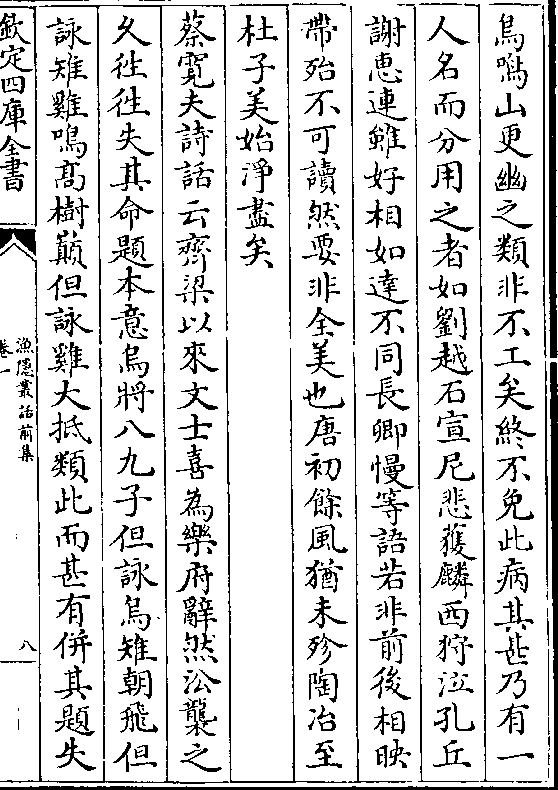 鳥鳴山更幽之類非不工矣終不免此病其甚乃有一
人名而分用之者如劉越石宣尼悲獲麟西狩泣孔丘
謝惠連雖好相如達不同長卿慢等語若非前後相映
帶殆不可讀然要非全美也唐初餘風猶未殄陶冶至
杜子美始淨盡矣
蔡寛夫詩話云齊梁以來文士喜為樂府辭然沿襲之
久往往失其命題本意烏將八九子但詠烏雉朝飛但
詠雉雞鳴髙樹巔但詠雞大抵類此而甚有併其題失
欽定四庫全書
漁隱叢話前集
卷一
八